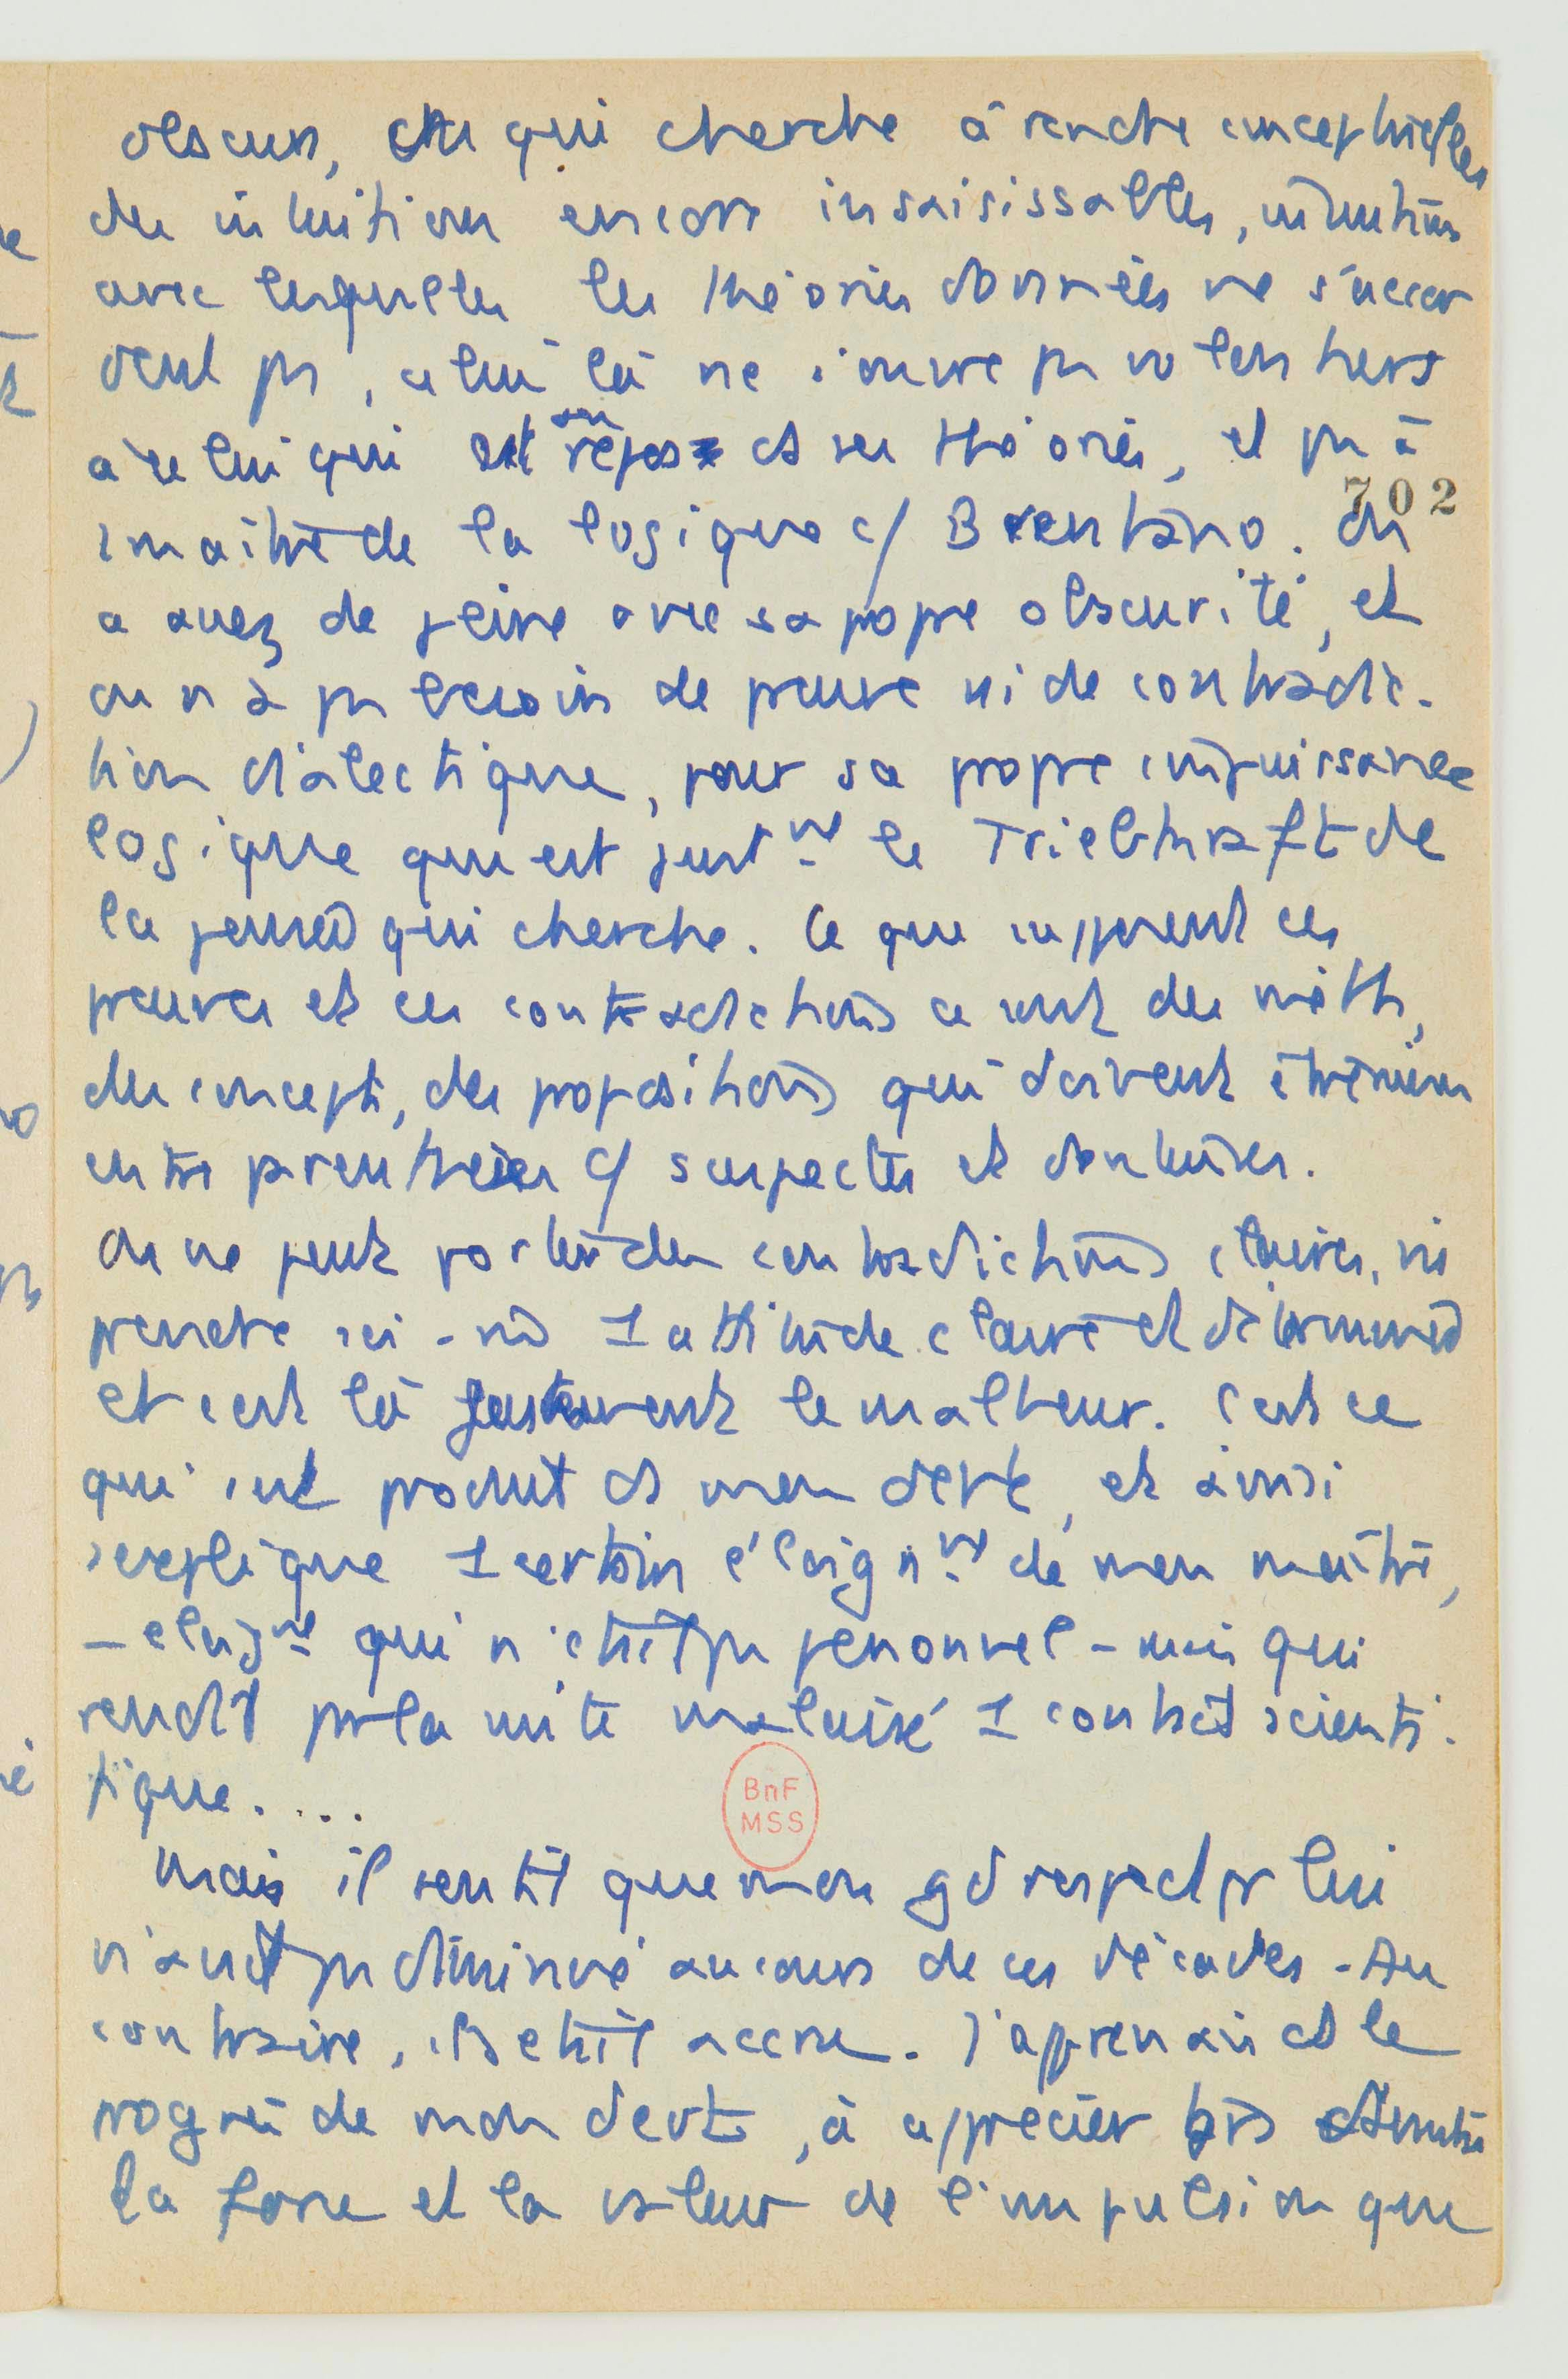 obscurs, et qui cherche à rendre conceptuelles
des intuitions encore insaisissables, intuitions
avec lesquelles les théories données ne s'accor
dent pas, celui là ne s'ouvre pas volontiers
à celui qui est en repos ds ses théories, et pas à
1 maître de la logique c/ Brentano. On
702
a assez de peine avec sa propre obscurité, et
on n'a pas besoin de preuve ni de contradic-
tion dialectique, pour sa propre impuissance
logique qui est justnt le Triebkraft de
la pensée qui cherche. Ce que supposent ces
preuves et ces contradictions ce sont des méth,
des concepts, des propositions qui doivent être
entre parenthèses c/ suspectes et douteuses.
On ne peut pas des contradictions claires, ni
prendre soi-m 1 attitude claire et déterminée
et c'est là justement le malheur. C'est ce
qui s'est produit ds mon devt, et ainsi
s'explique 1 certain éloignnt de mon maître,
– éloignt qui n'était pas personnel – mais qui
rendit par la suite malaisé 1 contact scienti-
fique....
BnF
MSS
Mais il sentit que mon gd respect pr lui
n'avait pas diminué au cours de ces décades. Au
contraire, il s'était accru. J'apprenais ds le
progrès de mon devt, à apprécier
la force et la valeur de l'impulsion que